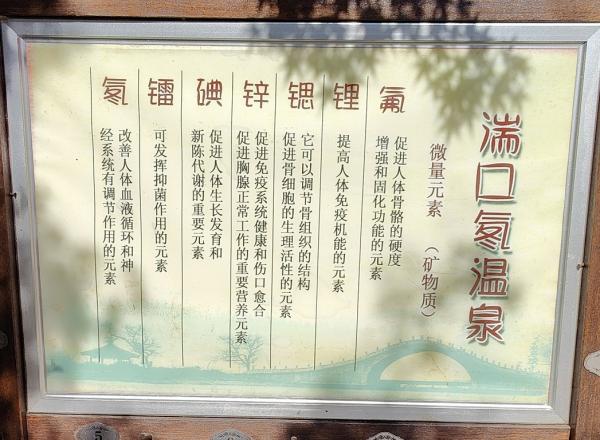 湍口氡温泉
微量元素（矿物质）
氟
促进人体骨骼的硬度
增强和固化功能的元素
锂
提高人体免疫机能的元素
锶
它可以调节骨组织的结构
促进骨细胞的生理活性的元素
锌
促进免疫系统健康和伤口愈合
促进胸腺正常工作的重要营养元素
碘
促进人体生长发育和
新陈代谢的重要元素
镭
可发挥抑菌作用的元素
氡
改善人体血液循环和神
经系统有调节作用的元素
5